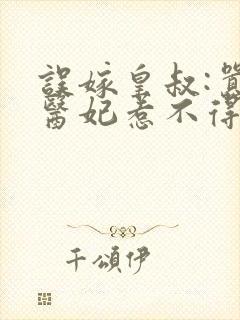 誤嫁皇叔:囂
醫妃惹不得
千頌伊